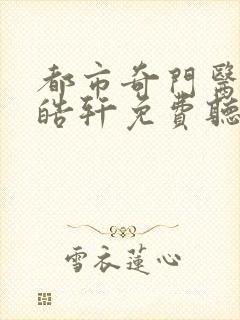 都市奇門醫
皓軒免費聽
雪衣蓮心